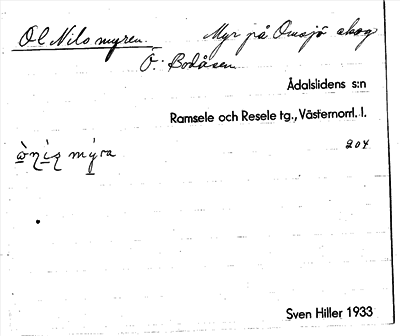 Ol Nilsmyren. Myr på Omsjö skog
Ö. Bodåsen
Ådalslidens s:n
Ramsele och Resele tg., Västernorrl. l.
204
Sven Hiller 1933